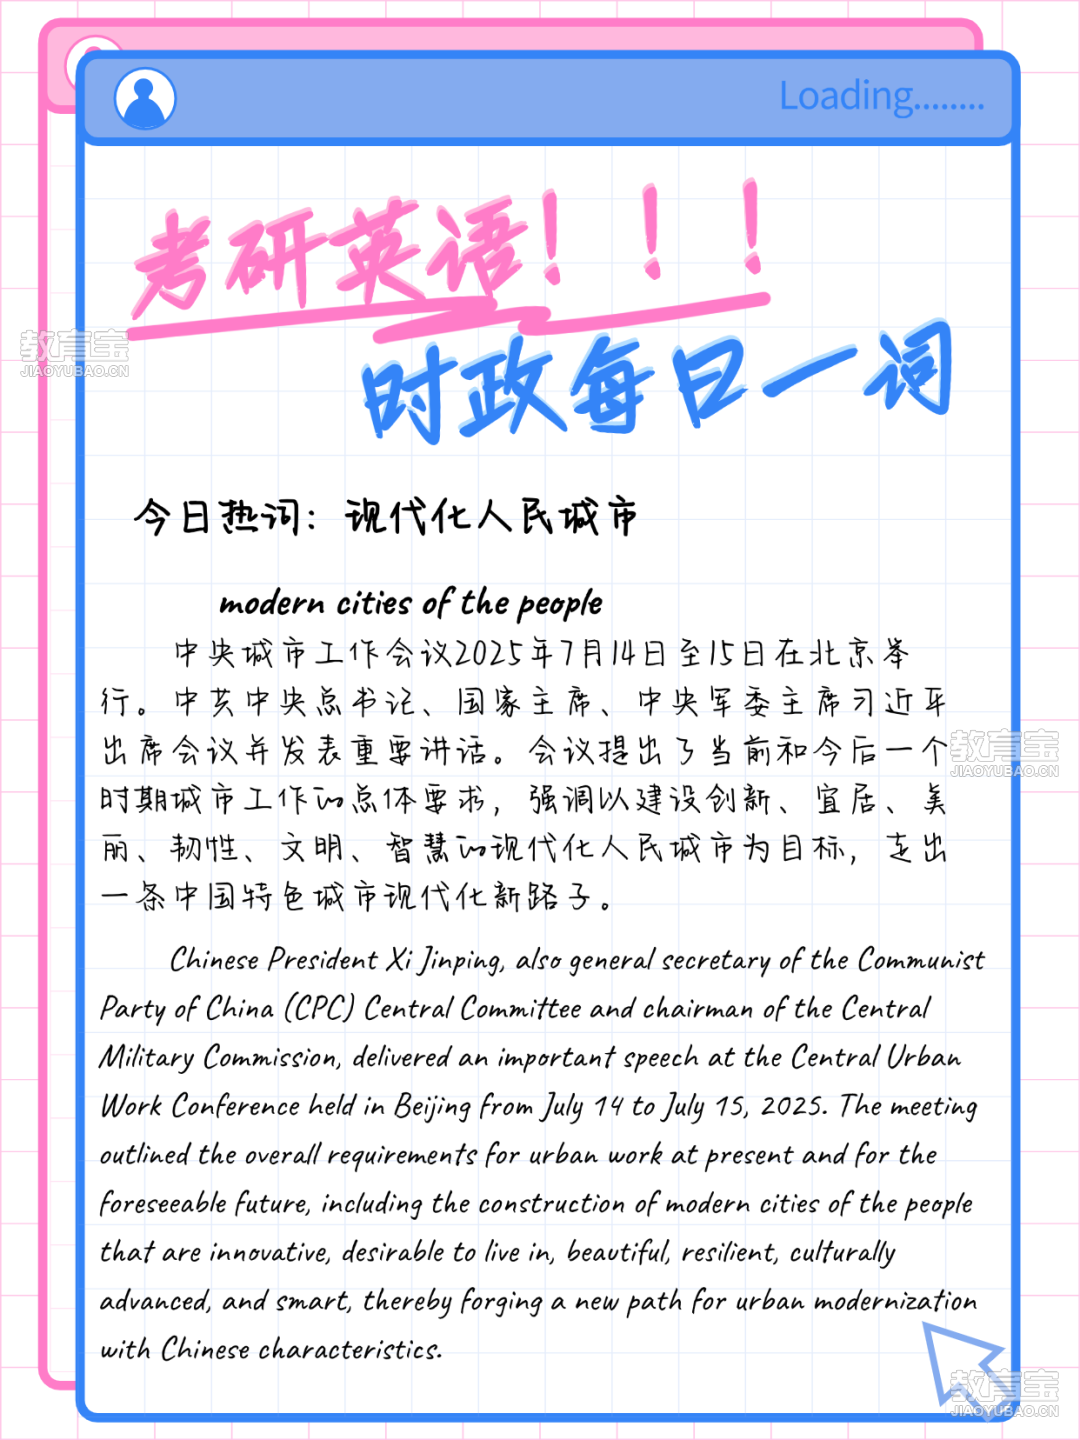 Loading........
考研英语！！！
时政每日一词
教育宝
JIAOYUBAO.CN
今日热词：现代化人民城市
modern cities of the people
中央城市工作会议2025年7月14日至15日在北京举
行。中共中央总书记、国家主席、中央军委主席习近平
出席会议并发表重要讲话。会议提出了当前和今后一个
时期城市工作的总体要求，强调以建设创新、宜居、美
丽、韧性、文明、智慧的现代化人民城市为目标，走出
一条中国特色城市现代化新路子。
教育宝
JIAOYUBAO.CN
Chinese President Xi Jinping, also general secretary of the Communist
Party of China (CPC) Central Committee and chairman of the Central
Military Commission, delivered an important speech at the Central Urban
Work Conference held in Beijing from July 14 to July 15, 2025. The meeting
outlined the overall requirements for urban work at present and for the
foreseeable future, including the construction of modern cities of the people
that are innovative, desirable to live in, beautiful, resilient, culturally
advanced, and smart, thereby forging a new path for urban modernization
with Chinese characteristics.
教育宝
JIAOYUBAO.CN